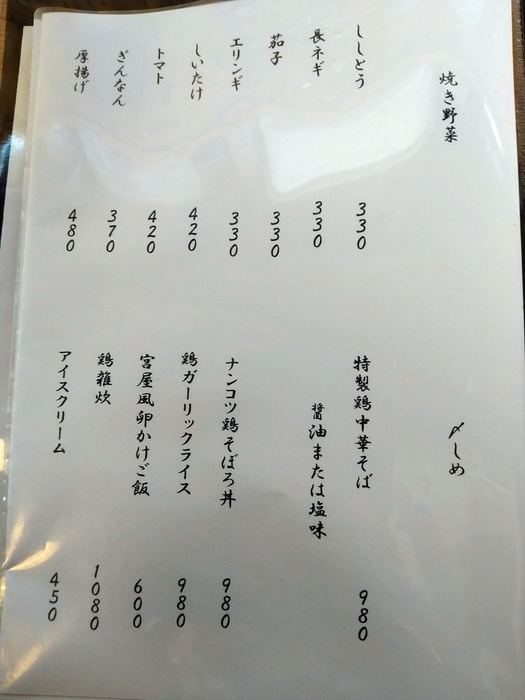 焼き野菜
ししとう 330
長ネギ 330
茄子 330
エリンギ 330
しいたけ 420
トマト 420
ぎんなん 370
厚揚げ 480
〆しめ
特製鶏中華そば 980
醤油または塩味
ナンコツ鶏そぼろ丼 980
鶏ガーリックライス 980
宮屋風卵かけご飯 600
鶏雑炊 1080
アイスクリーム 450